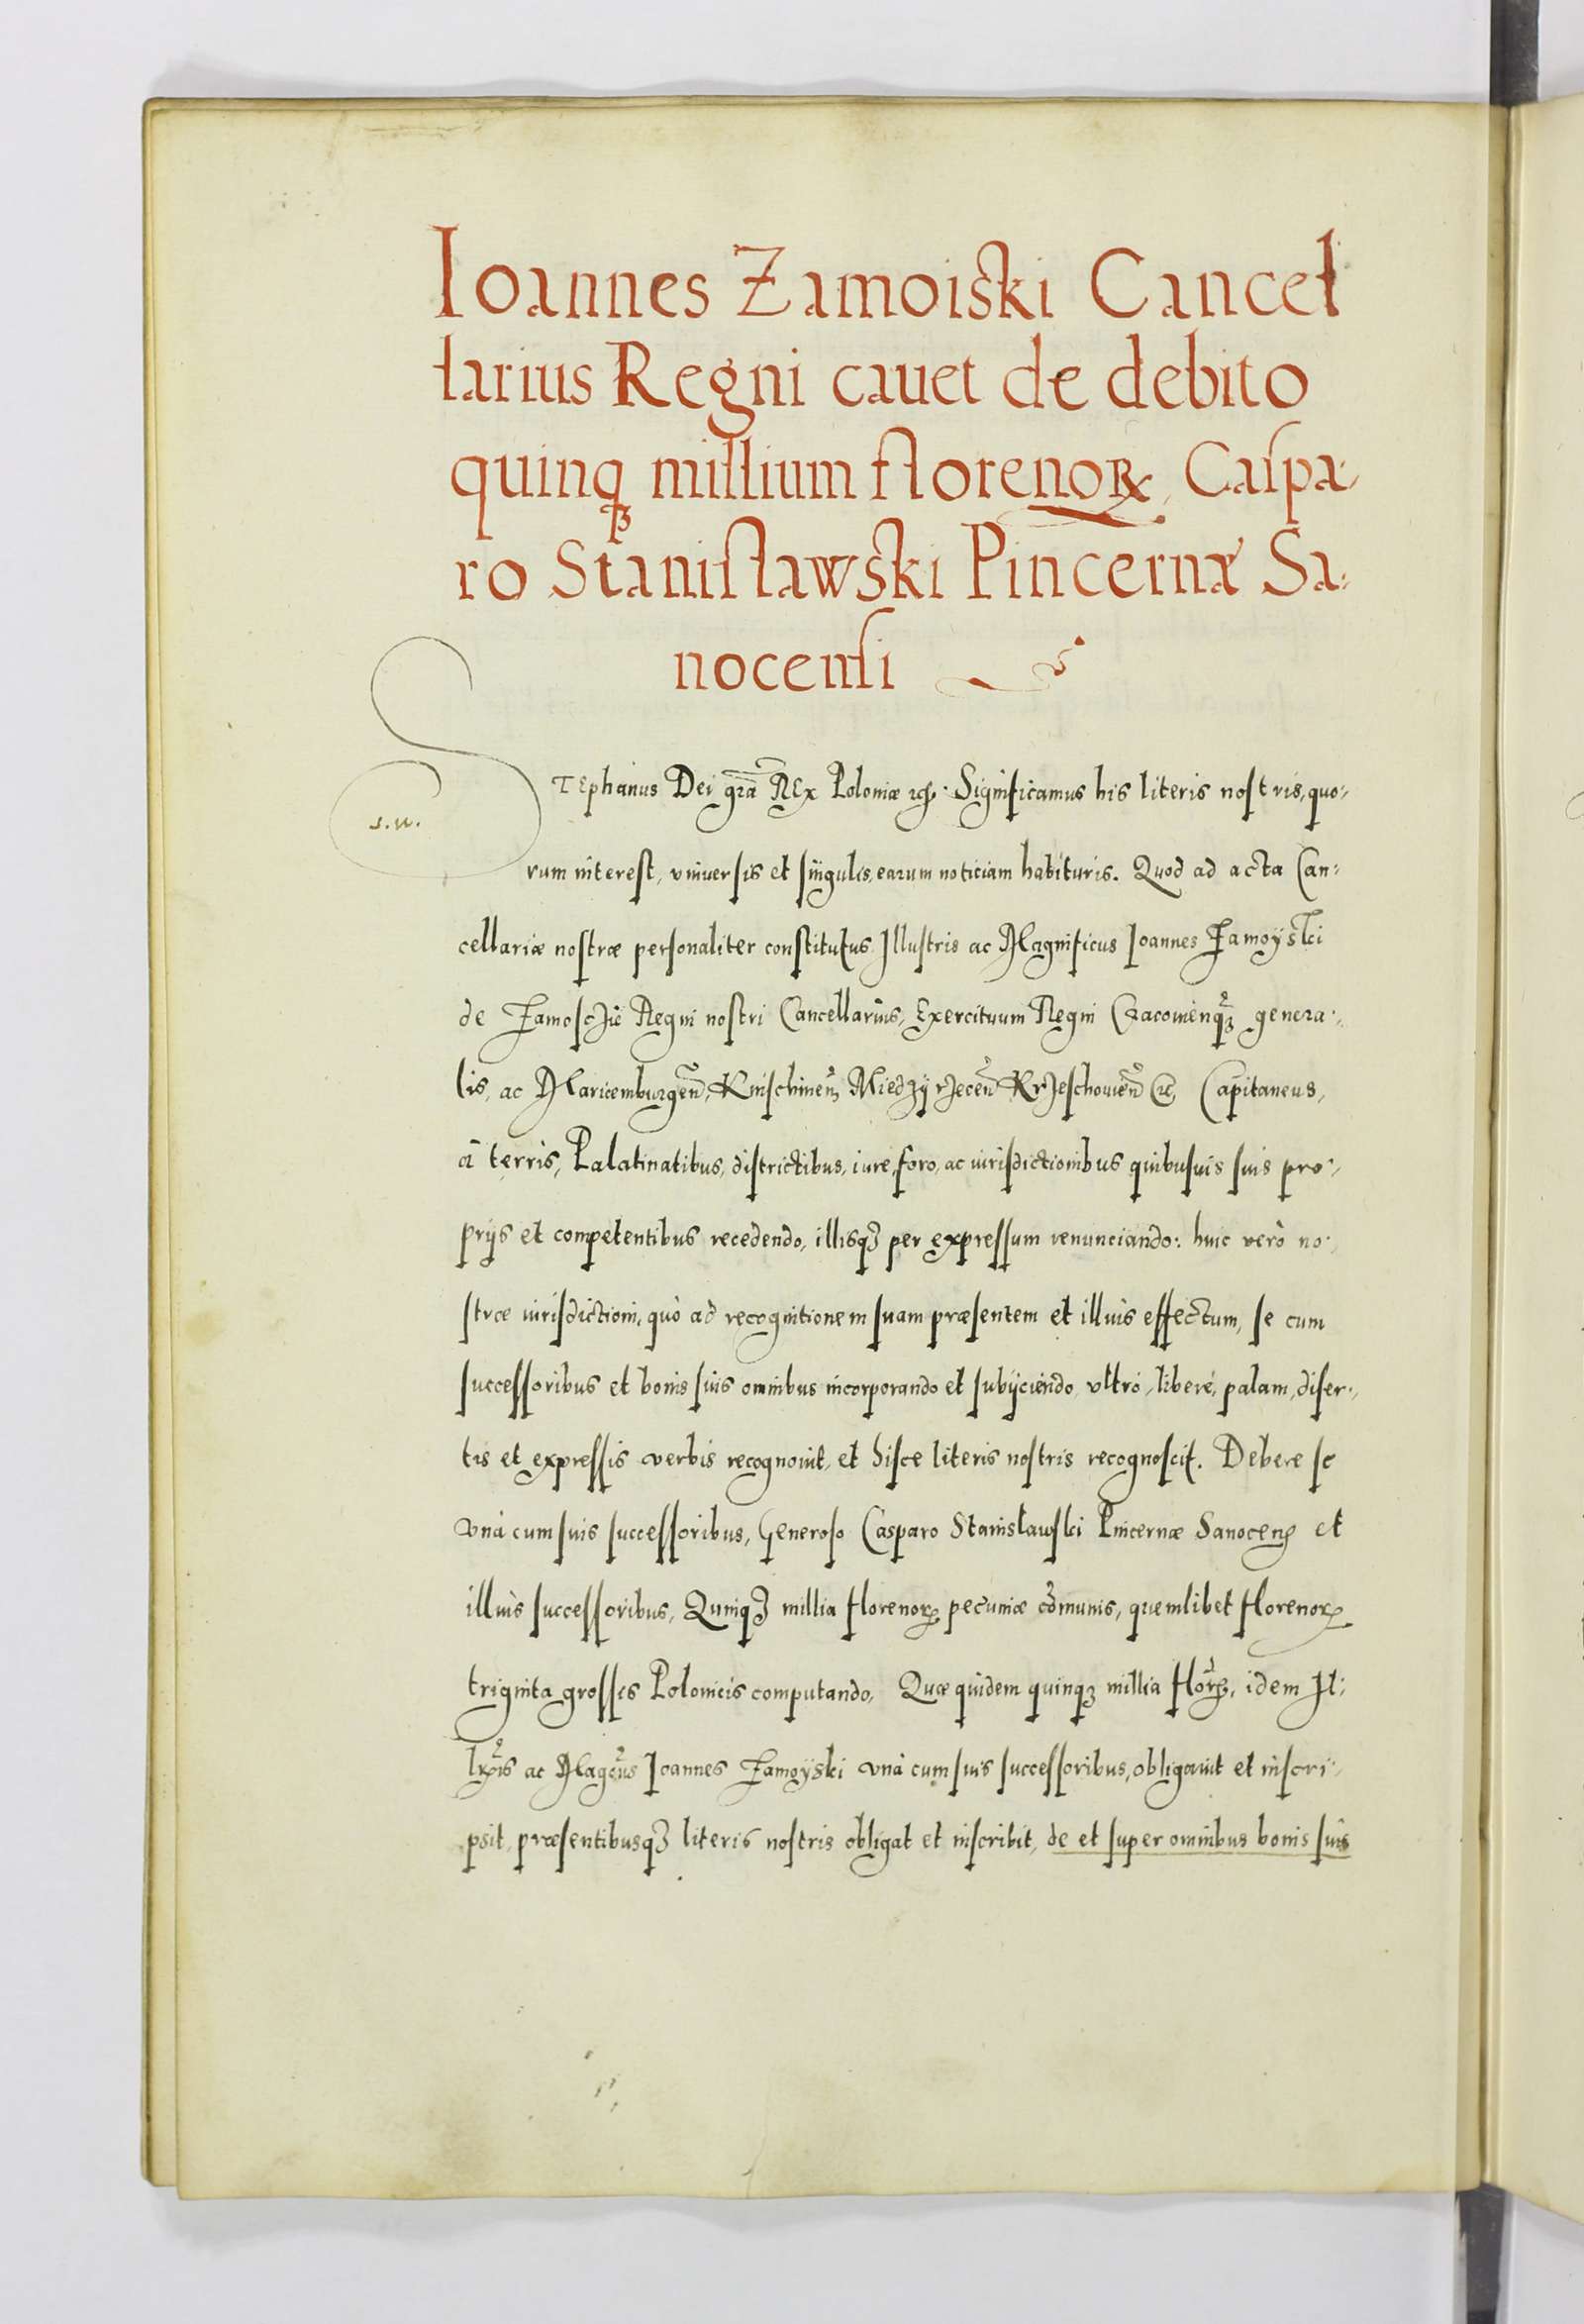 Ioannes Zamoiski Cancel
larius Regni cauet de debito
quinqꝫ millium florenoꝝ, Caspa-
ro Stanislawski Pincernæ Sa-
nocensi
STEphanus Dei gr̃a REx Poloniæ &c. Significamus his literis nostris, quo-
s. w.
rum interest, vniuersis et singulis, earum noticiam habituris. Quod ad acta Can-
cellariæ nostræ personaliter constitutus Illustris ac Magnificus Ioannes Zamoyski
de Zamosczie Regni nostri Cancellarius, Exercituum Regni Cracouien̄qꝫ genera-
lis, ac Mariemburgen̄, Knischinen̄, Miedzyrzecen̄ Krzeschouien̄ &c, Capitaneus,
à terris, Palatinatibus, districtibus, iure, foro, ac iurisdictionibus quibusuis suis pro-
prijs et competentibus recedendo, illisqꝫ per expressum renunciando: huic verò no-
stræ iurisdictioni, quò ad recognitionem suam præsentem et illius effectum, se cum
successoribus et bonis suis omnibus incorporando et subijciendo, vltrò, liberè, palam, diser-
tis et expressis verbis recognouit, et hisce literis nostris recognoscit. Debere se
vnà cum suis successoribus, Generoso Casparo Stanislawski Pincernæ Sanocen̄ et
illius successoribus, Quinqꝫ millia florenoꝝ pecuniæ cõmunis, quemlibet florenoꝝ
triginta grossis Polonicis computando, Quæ quidem quinqꝫ millia flor̃, idem Il-
lr̃is ac Mag̃cus Ioannes Zamoyski vnà cum suis successoribus, obligauit et inscri-
psit, præsentibusqꝫ literis nostris obligat et inscribit, de et super omnibus bonis suis